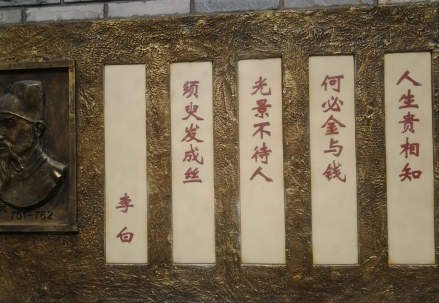 人生贵相知
何必金与钱
光景不待人
须叟发成丝
李白
701-762